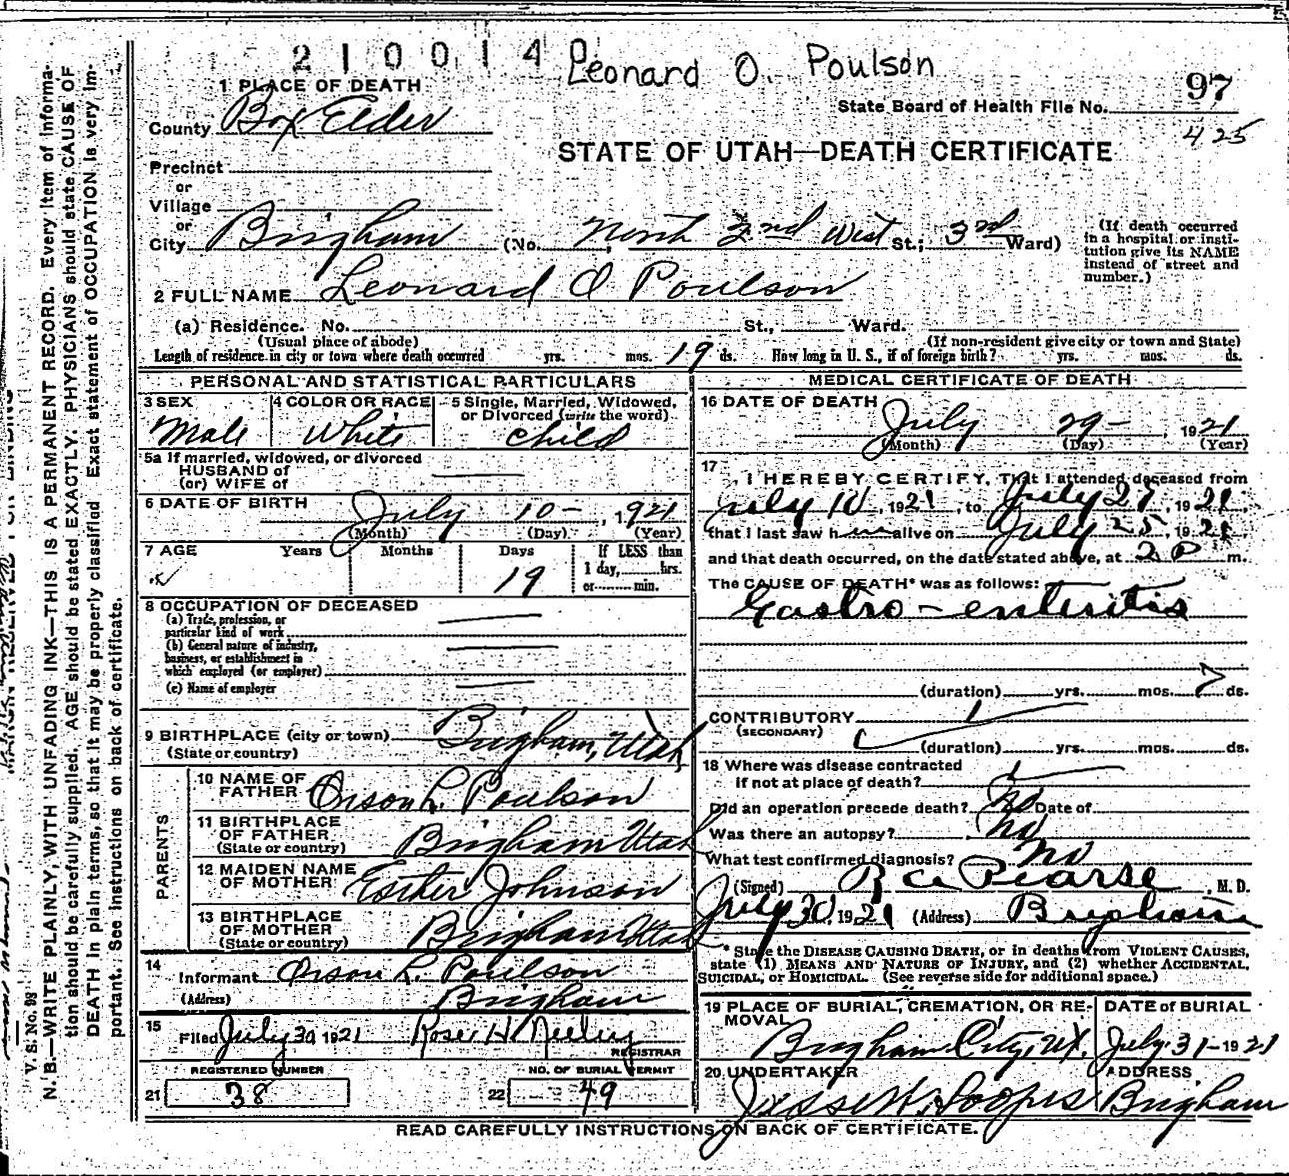 2100140 Leonard O. Poulson
97
1 PLACE OF DEATH
State Board of Health File No.
425
County Box Elder
STATE OF UTAH—DEATH CERTIFICATE
Precinct
or
Village
or
City Brigham (No. North 2nd West St.; 3rd Ward)
(If death occurred in a hospital or insti-
tution give its NAME
instead of street and
number.)
2 FULL NAME Leonard O Poulson
(a) Residence. No. St., Ward.
(Usual place of abode) (If non-resident give city or town and State)
Length of residence in city or town where death occurred yrs. mos. 19 ds. How long in U. S., if of foreign birth? yrs. mos. ds.
PERSONAL AND STATISTICAL PARTICULARS
3 SEX 4 COLOR OR RACE 5 Single, Married, Widowed,
or Divorced (write the word)
Male White child
5a If married, widowed, or divorced
HUSBAND of
(or) WIFE of
6 DATE OF BIRTH
July 10- , 1921
(Month) (Day) (Year)
7 AGE Years Months Days If LESS than
1 day, hrs.
or min.
19
8 OCCUPATION OF DECEASED
(a) Trade, profession, or
particular kind of work
(b) General nature of industry,
business, or establishment in
which employed (or employer)
(c) Name of employer
9 BIRTHPLACE (city or town) Brigham, Utah
(State or country)
PARENTS
10 NAME OF
FATHER Orson L. Poulson
11 BIRTHPLACE
OF FATHER Brigham Utah
(State or country)
12 MAIDEN NAME
OF MOTHER Esther Johnson
13 BIRTHPLACE
OF MOTHER Brigham Utah
(State or country)
14
Informant Orson L. Poulson
(Address) Brigham
15
Filed July 30 1921 Rose H Neeley
REGISTRAR
REGISTERED NUMBER NO. OF BURIAL PERMIT
21 38 22 49
MEDICAL CERTIFICATE OF DEATH
16 DATE OF DEATH
July 29- , 1921
(Month) (Day) (Year)
17
I HEREBY CERTIFY, That I attended deceased from
July 10, 1921, to July 29, 1921
that I last saw h alive on July 25, 1921,
and that death occurred, on the date stated above, at 2 P m.
The CAUSE OF DEATH* was as follows:
Gastro-enteritis
(duration) yrs. mos. 7 ds.
CONTRIBUTORY
(SECONDARY)
(duration) yrs. mos. ds.
18 Where was disease contracted
if not at place of death?
Did an operation precede death? No Date of
Was there an autopsy? No
What test confirmed diagnosis? No
(Signed) R a Pearse, M. D.
July 30, 1921 (Address) Brigham
* State the DISEASE CAUSING DEATH, or in deaths from VIOLENT CAUSES,
state (1) MEANS AND NATURE OF INJURY, and (2) whether ACCIDENTAL,
SUICIDAL, or HOMICIDAL. (See reverse side for additional space.)
19 PLACE OF BURIAL, CREMATION, OR RE-
MOVAL DATE OF BURIAL
Brigham City, Ut. July 31-1921
20 UNDERTAKER ADDRESS
Jesse W. Hoopes Brigham
READ CAREFULLY INSTRUCTIONS ON BACK OF CERTIFICATE.
V. S. No. 98
N. B.—WRITE PLAINLY, WITH UNFADING INK—THIS IS A PERMANENT RECORD. Every item of informa-
tion should be carefully supplied. AGE should be stated EXACTLY. PHYSICIANS should state CAUSE OF
DEATH in plain terms, so that it may be properly classified. Exact statement of OCCUPATION is very im-
portant. See Instructions on back of certificate.